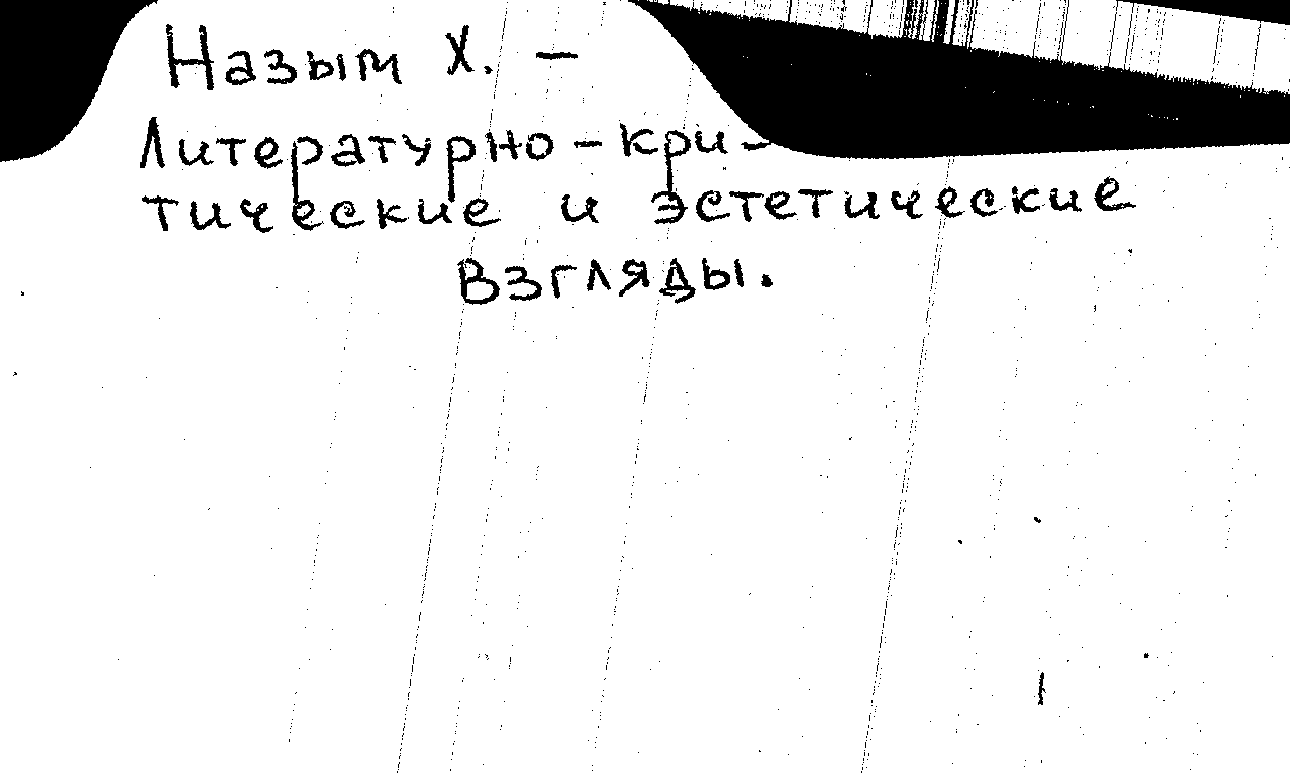 Назым Х. –
Литературно-кри-
тические и эстетические
взгляды.